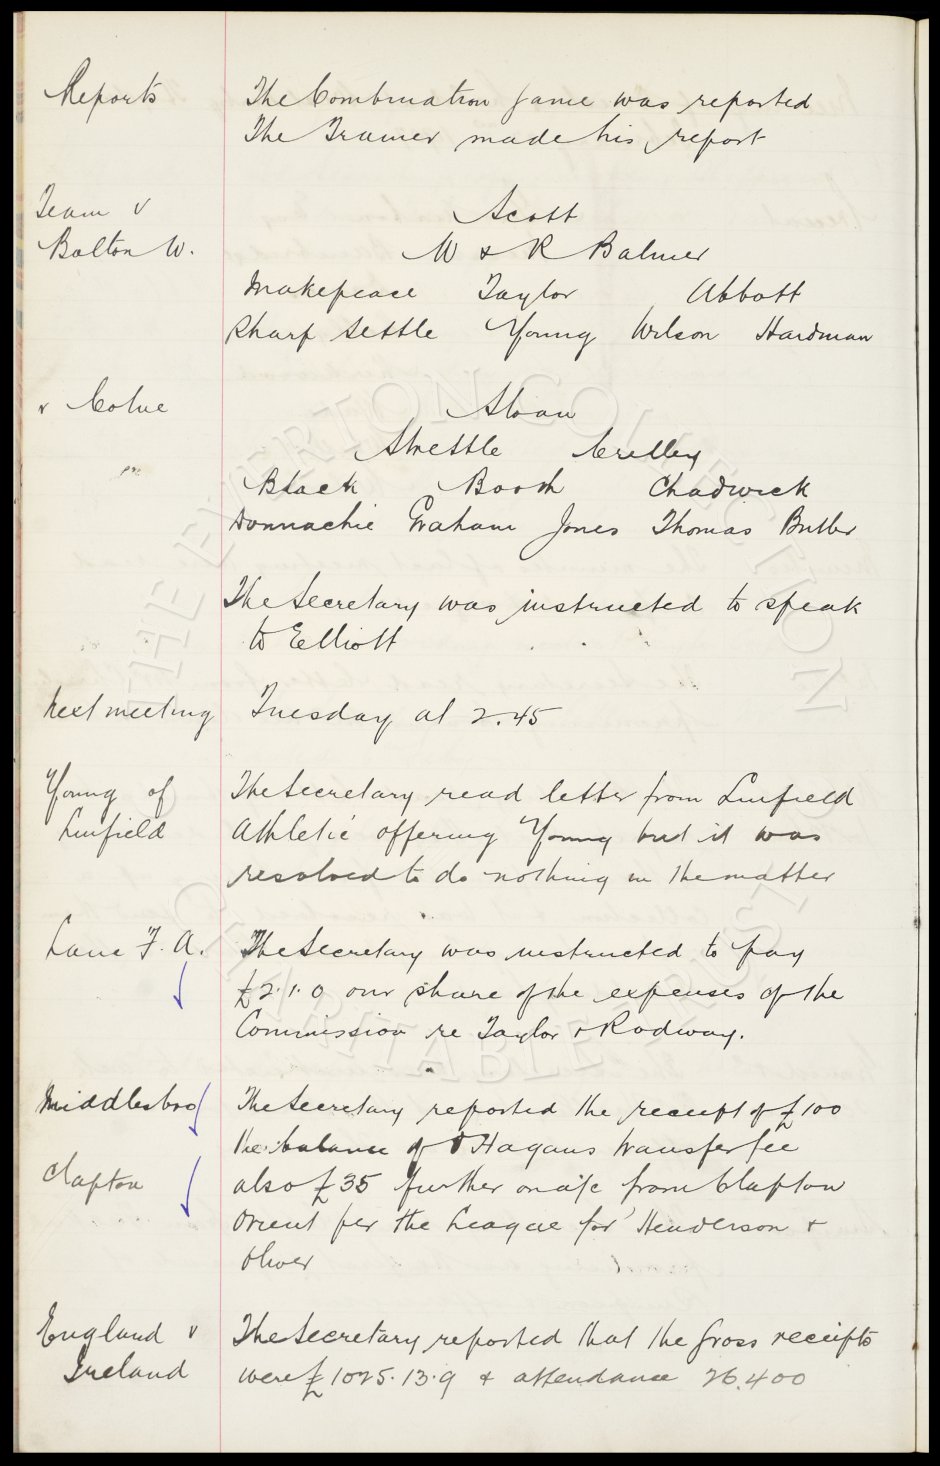 Reports The Combination game was reported
The Trainer made his report
Team v Scott
Bolton W. W & R Balmer
Makepeace Taylor Abbott
Sharp Settle Young Wilson Hardman
v Colne Sloan
Strettle Crelley
Black Booth Chadwick
Donnachie Graham Jones Thomas Butler
The Secretary was instructed to speak
to Elliott
Next meeting Tuesday at 2.45
Young of The Secretary read letter from Linfield
Linfield Athletic offering Young but it was
resolved to do nothing in the matter
Lanc F. A. The Secretary was instructed to pay
£2.1.0 our share of the expenses of the
Commission re Taylor & Rodway.
Middlesbro The Secretary reported the receipt of £100
the balance of O'Hagans transfer fee
Clapton also £35 further on a/c from Clapton
Orient per the League for Henderson &
Oliver
England v The Secretary reported that the gross receipts
Ireland were £1025.13.9 & attendance 26.400
THE EVERTON COLLECTION
CHARITABLE TRUST